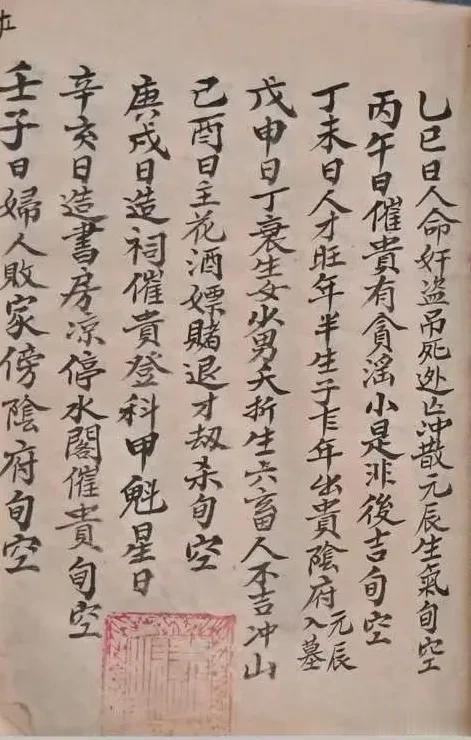 乙巳日人命奸盗吊死逃亡冲散元辰生氣旬空
丙午日催貴有貪淫小是非後吉旬空
丁未日人才旺年半生子七年出貴陰府元辰入墓
戊申日丁衰生女少男夭折生六畜人不吉冲山
己酉日主花酒嫖賭退才劫杀旬空
庚戌日造祠催貴登科甲魁星日
辛亥日造書房凉停水閣催貴旬空
壬子日婦人敗家傍陰府旬空